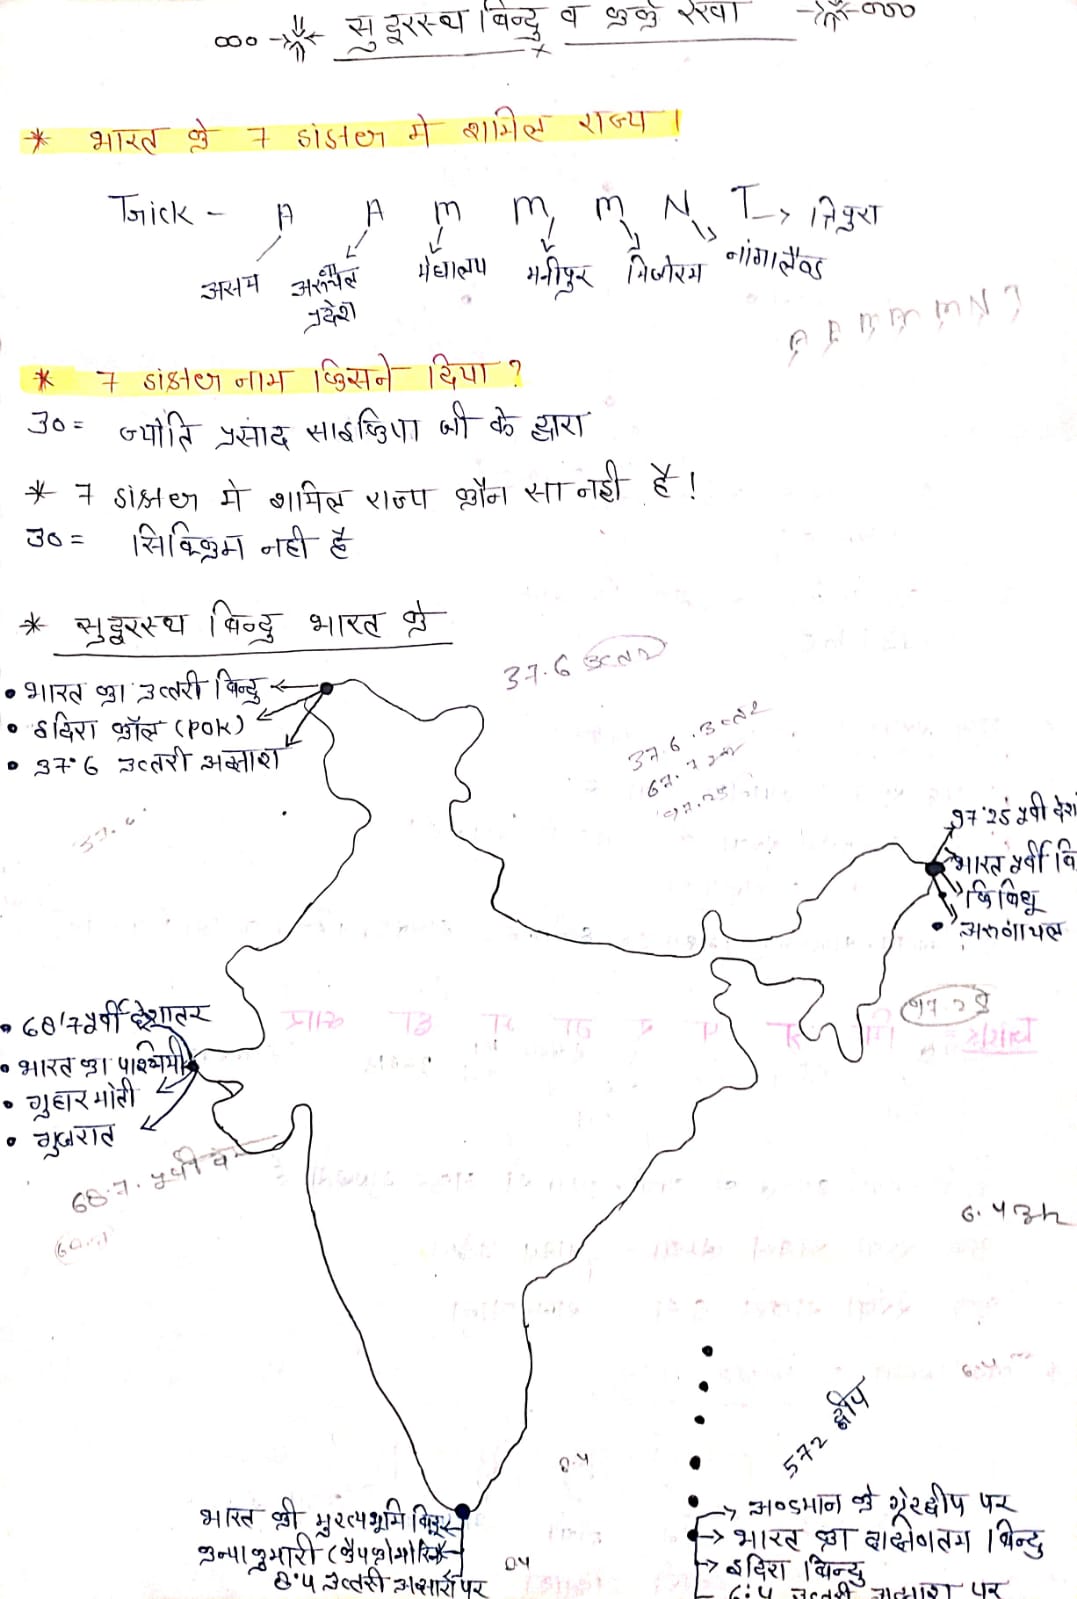 सुदूरस्थ बिन्दु व कर्क रेखा
* भारत के 7 sister मे शामिल राज्य !
Trick - A A m m m N T → त्रिपुरा
असम अरुणाचल प्रदेश मेघालय मनीपुर मिजोरम नांगालैण्ड
A A m m m N T
* 7 sister नाम किसने दिया ?
उ० = ज्योति प्रसाद साइकिया जी के द्वारा
* 7 sister मे शामिल राज्य कौन सा नही है !
उ० = सिक्किम नही है
* सुदूरस्थ बिन्दु भारत के
37.6 उत्तर
• भारत का उत्तरी बिन्दु
• इंदिरा कॉल (POK)
• 37°6 उत्तरी अक्षाश
37.6 उत्तर
67.7
97.25
37.6
97°25 पूर्वी देश
भारत पूर्वी बि
किबिथू
• अरुणाचल
97.25
• 68°7 पूर्वी देशान्तर
• भारत का पश्चिमी
• गुहार मोती
• गुजरात
68.7. पूर्वी दे
6.4 उत्त
6.4
572 द्वीप
8.4
भारत की मुख्यभूमि बिन्दु
कन्याकुमारी (कैपकोमोरिन)
8°4 उत्तरी अक्षांश पर
→ अण्डमान के ग्रेटद्वीप पर
→ भारत का दक्षिणतम बिन्दु
→ इंदिरा बिन्दु
6°4 उत्तरी अक्षाश पर